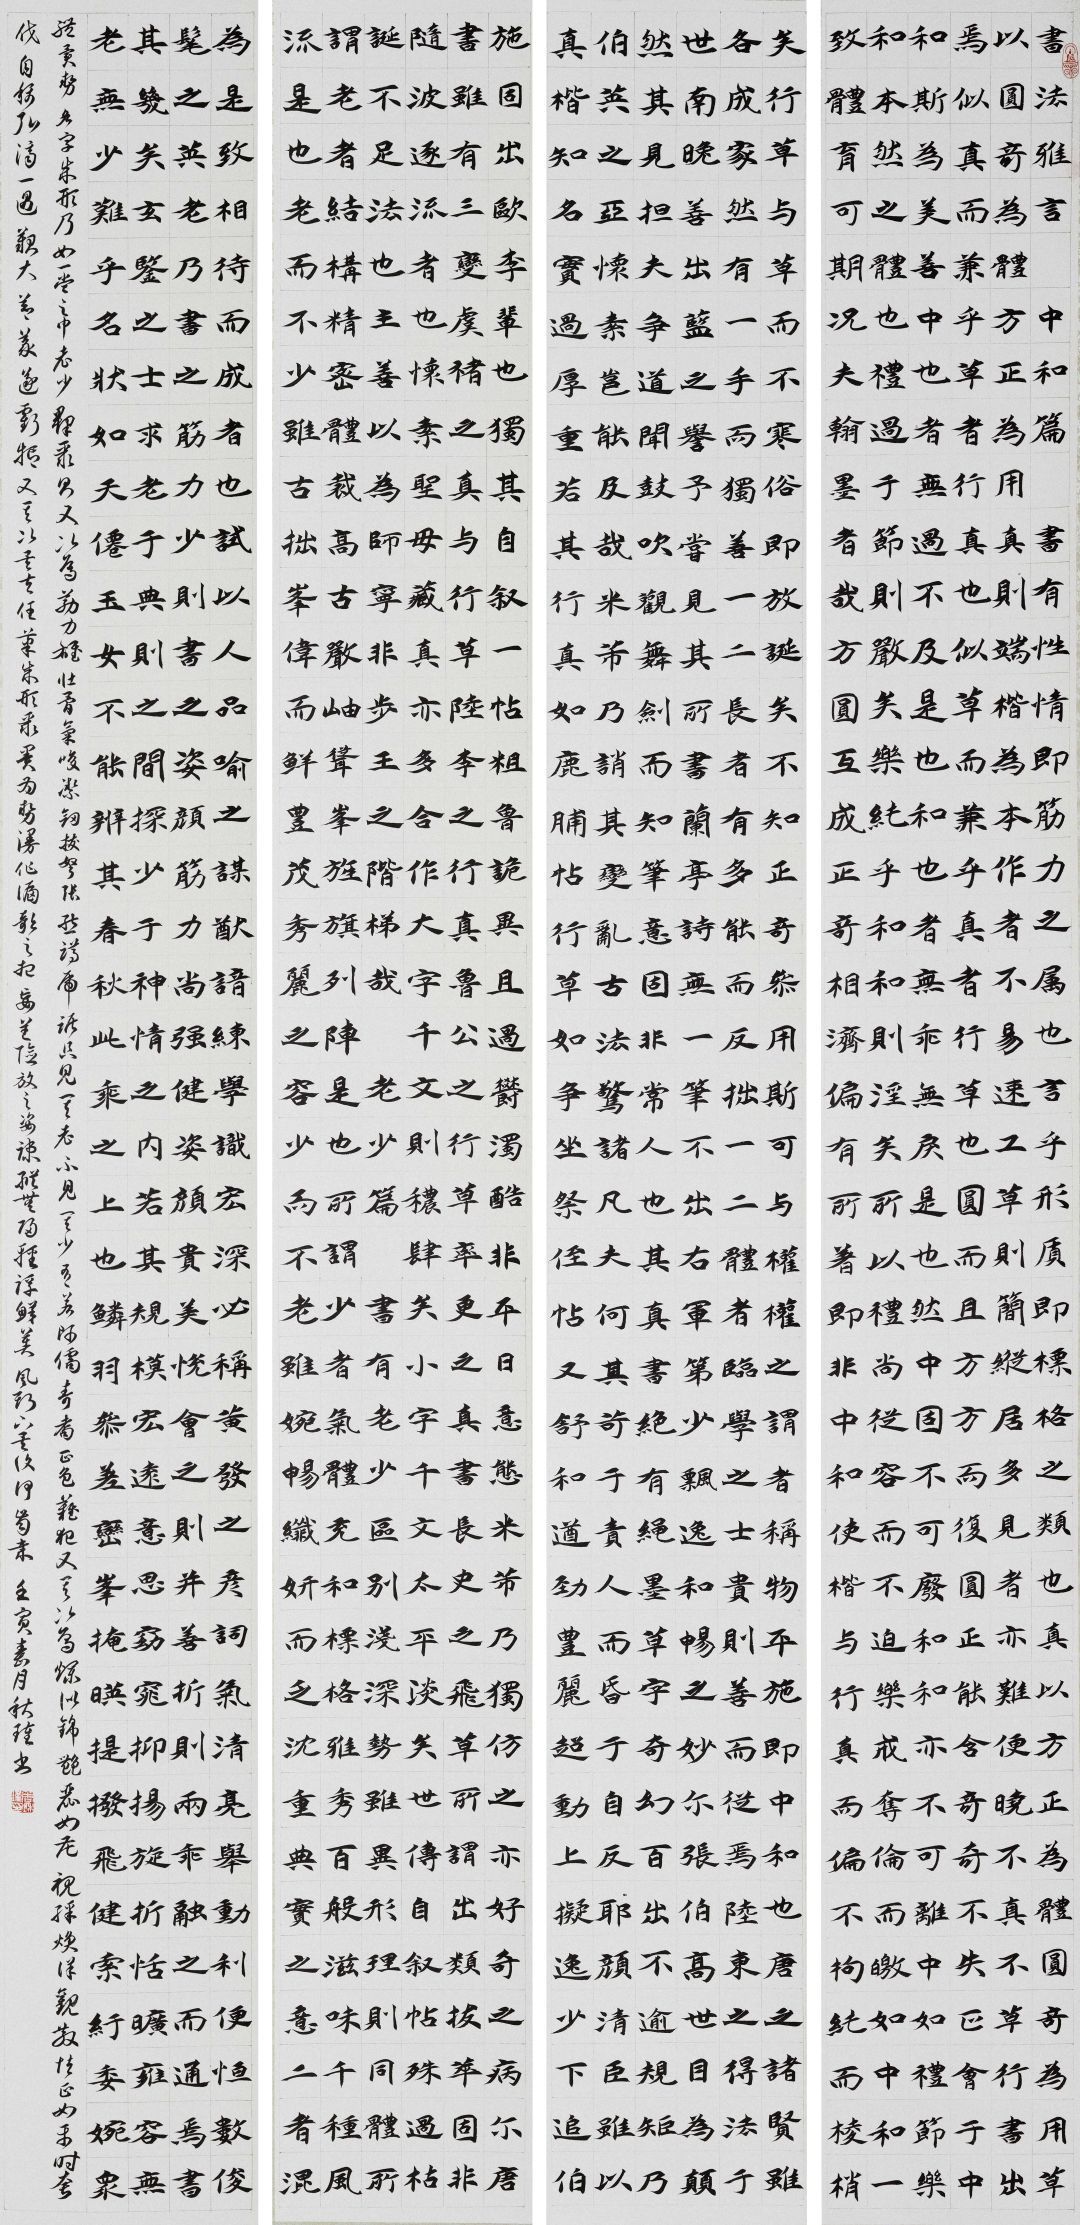 書法雅言 中和篇 書有性情即筋力之属也言乎形质即標格之類也真以方正為體圓奇為用草
以圓奇為體方正為用真則端楷為本作者不易速工草則簡縱居多見者亦難便曉不真不草行書出
焉似真而兼乎草者行真也似草而兼乎真者行草也圓而且方方而復圓正能含奇奇不失正會于中
和斯為美善中也者無過不及是也和也者無乖無戾是也然中固不可廢和和亦不可離中如禮節樂
和本然之體也禮過于節則嚴矣樂純乎和和則淫矣所以禮尚從容而不迫樂戒奪倫而皦如中和一
致體育可期况夫翰墨者哉方圓互成正奇相濟偏有所著即非中和使楷与行真而偏不拘純而棱梢
矣行草与草而不寒俗即放誕矣不知正奇參用斯可与權權之謂者稱物平施即中和也唐之諸賢雖
各成家然有一手而獨善一二長者有多能而反拙一二體者臨學之士貴則善而從焉陸東之得法于
世南晚善出藍之譽予嘗見其所書蘭亭詩無一筆不出右軍第少飄逸和暢之妙尔張伯高世目為顛
然其見担夫争道聞鼓吹觀舞劍而知筆意固非常人也其真書絶有绳墨草字奇幻百出不逾規矩乃
伯英之亞懷素豈能及哉米芾乃誚其變亂古法驚諸凡夫何其苛于责人而昏于自反耶顔清臣雖以
真楷知名實過厚重若其行真如鹿脯帖行草如争坐祭侄帖又舒和遒劲豐麗超動上擬逸少下追伯
施固出歐李輩也獨其自叙一帖粗魯詭異且過鬱濁酷非平日意態米芾乃獨仿之亦好奇之病尔唐
書雖有三變虞褚之真与行草陸李之行真魯公之行草率更之真書長史之飛草所謂出類拔萃固非
隨波逐流者也懷素聖母藏真亦多合作大字千文則穠肆矣小字千文太平淡矣世傳自叙帖殊過枯
誕不足法也主善以為師寧非步王之階梯哉 老少篇 書有老少區别淺深勢雖異形理則同體所
謂老者結構精密體裁高古嚴岫聳峯旌旗列陣是也所謂少者氣體充和標格雅秀百般滋味千種風
流是也老而不少雖古拙峯偉而鮮豐茂秀麗之容少而不老雖婉暢纖妍而乏沈重典實之意二者混
為是致相待而成者也試以人品喻之謀猷諳練學識宏深必稱黄發之彦詞氣清亮舉動利便恒數俊
髦之英老乃書之筋力少則書之姿顔筋力尚强健姿顔貴美悅會之則并善折則兩乖融之而通焉書
其幾矣玄鑒之士求老于典則之間探少于神情之内若其規模宏遠意思窈窕抑揚旋折恬曠雍容無
老無少難乎名狀如天僊玉女不能辨其春秋此乘之上也鱗羽參差巒峯掩暎提撥飛健索紆委婉衆
體異勢各字成形乃如一堂之中老少群聚則又次焉筋力雄壮骨氣峻潔
伐自極孤高一遇艱大節義遂虧抑又其次矣